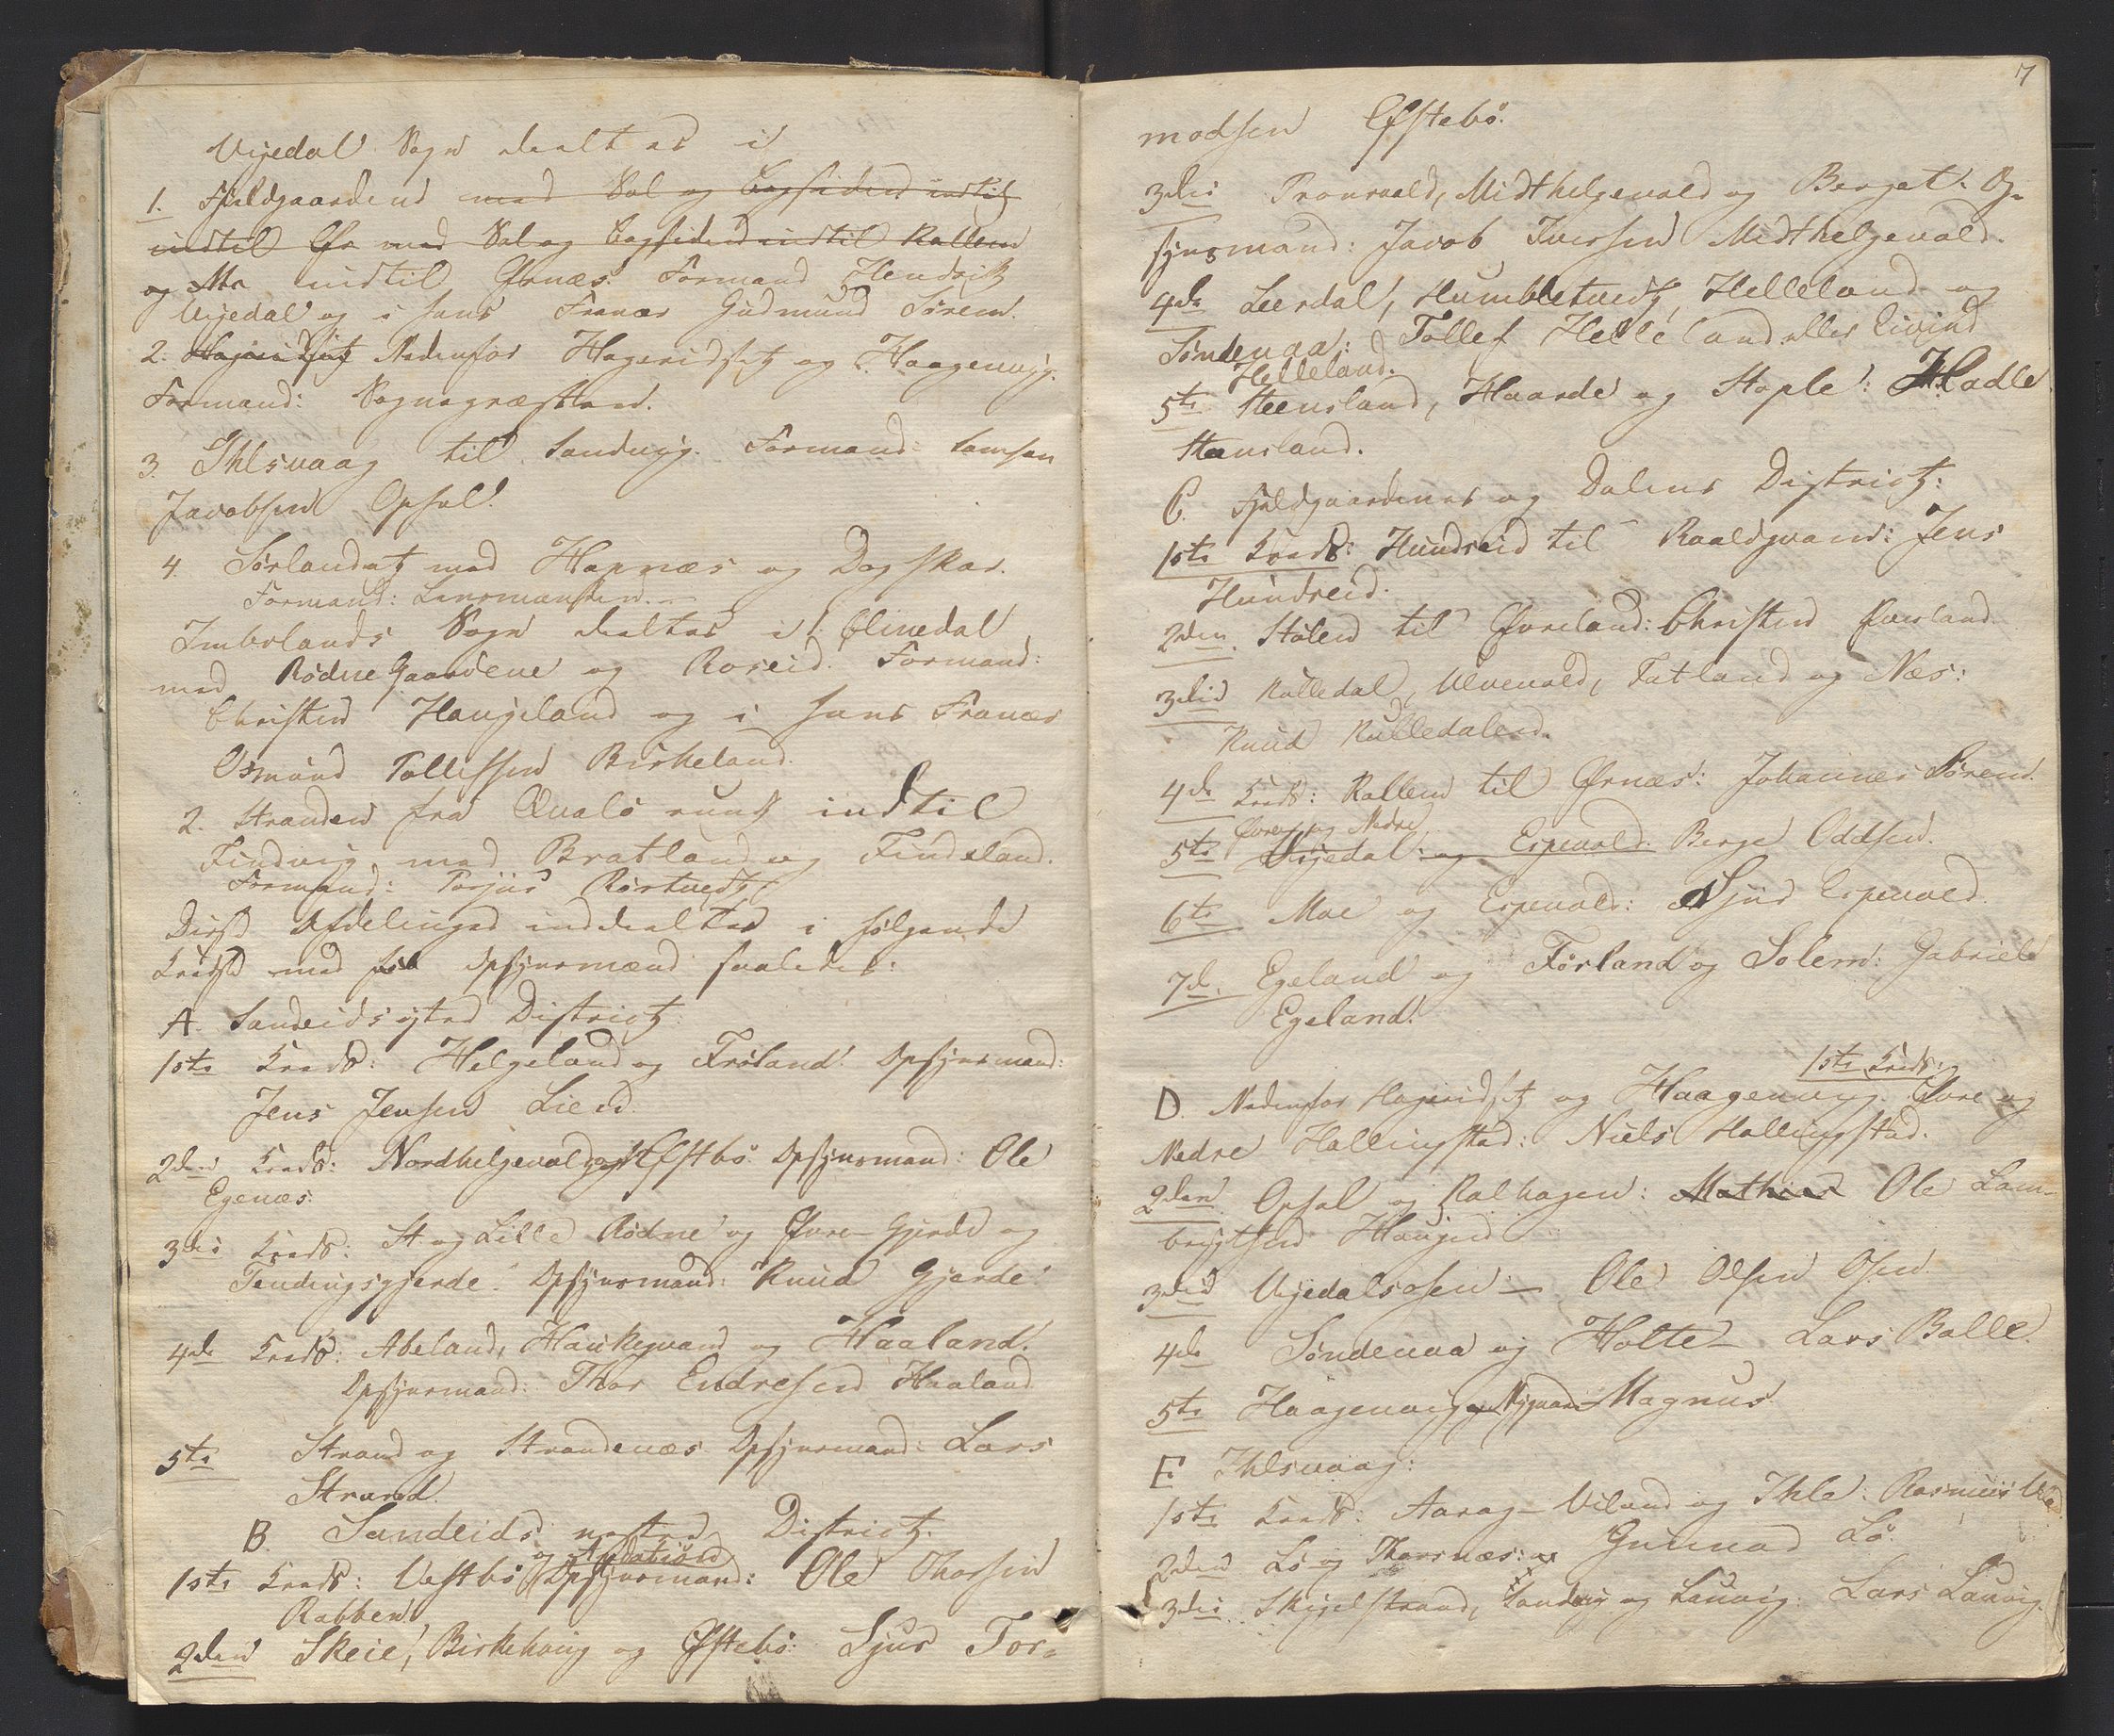 Vigedal Sogn deeltes i
1. Fjeldgaardene med Dal og Bagsiden indtil
indtil Ør med Dal og Bagsiden indtil Rallem
og Mo indtil Ørnæs. Formand Hendrik
Vigedal og i hans Fravær Gudmund Sørem.
2. Hageridset Nedenfor Hageridset og Haagenvig.
Formand: Sognepræsten.
3. Ihlsvaag til Sandvig. Formand: Samson
Jacobsen Opsal.
4. Sørlandet med Hapnæs og Dogskar.
Formand: Lensmanden. —
Imbslands Sogn deeltes i 1. Ølmedal
med Rødne Gaardene og Roseid. Formand:
Christen Haugeland og i hans Fravær
Osmund Tollefsen Birkeland.
2. Stranden fra Qualø rundt indtil
Findvig med Bratland og Findsland.
Formand: Torjus Rørtvedt
Disse Afdelinger inddeeltes i følgende
Kredse med Opsynsmænd saaledes:
A. Sandeids ytre District
1ste Kreds: Helgeland og Frøland. Opsynsmand:
Jens Jensen Lien.
2den Kreds: Nordhelgevold og Øfstbø. Opsynsmand: Ole
Egenæs.
3die Kreds: St og Lille Rødne og Øvre-Gjerde og
Tendingsgjerde. Opsynsmand: Knud Gjerde.
4de Kreds: Abeland, Haukegvand og Haaland.
Opsynsmand: Thor Endresen Haaland
5te Strand og Strandenæs. Opsynsmand: Lars
Strand.
B. Sandeids nestre District.
1ste Kreds: Vestbø Opsynsmand: Ole Thorsen
Rabben
2den Skeie, Birkehaug og Øfstebø: Sjur Tor=
7
modsen Øfstebø.
3die Tronvold, Midthelgevold og Berget. Op=
synsmand: Jacob Iversen Midthelgevold.
4de Leerdal, Humbletvedt, Helleland og
Søndenaa: Tollef Helleland eller Eivind
Helleland.
5te Steensland, Haarde og Stople: Hadle
Stensland.
C. Fjeldgaardenes og Dalens District:
1ste Kreds: Hundseid til Raaldgvand: Jens
Hundseid.
2den Stølen til Øvreland: Christen Øvreland
3die Kulledal, Ulvevold, Fatland og Næs:
Knud Kulledalen.
4de Kreds: Rallem til Ørnæs: Johannes Sørem.
Øvre og Nedre
5te Vigedal og Espevold. Berge Oddsen.
6te Moe og Espevold: Sjur Espevold.
7de Egeland og Førland og Solem: Gabriel
Egeland.
1ste Kreds:
D. Nedenfor Hageridset og Haagenvig. Øvre og
Nedre Hallingstad: Niels Hallingstad.
2den Opsal og Kalhagen: Mathias Ole Lam-
bregtsen Haugen
3die Vigedalsosen — Ole Olsen Osen
4de Søndenaa og Holte — Lars Balle.
5te Haagenvig og Mygvand Magnus
E. Ihlsvaag:
1ste Kreds: Aarag- Viland og Ihle: Rasmus
2den Lø og Thorsnæs: Gunnar Lø.
3die Skigelstrand, Sandvig og Lauvig: Lars Lauvig.